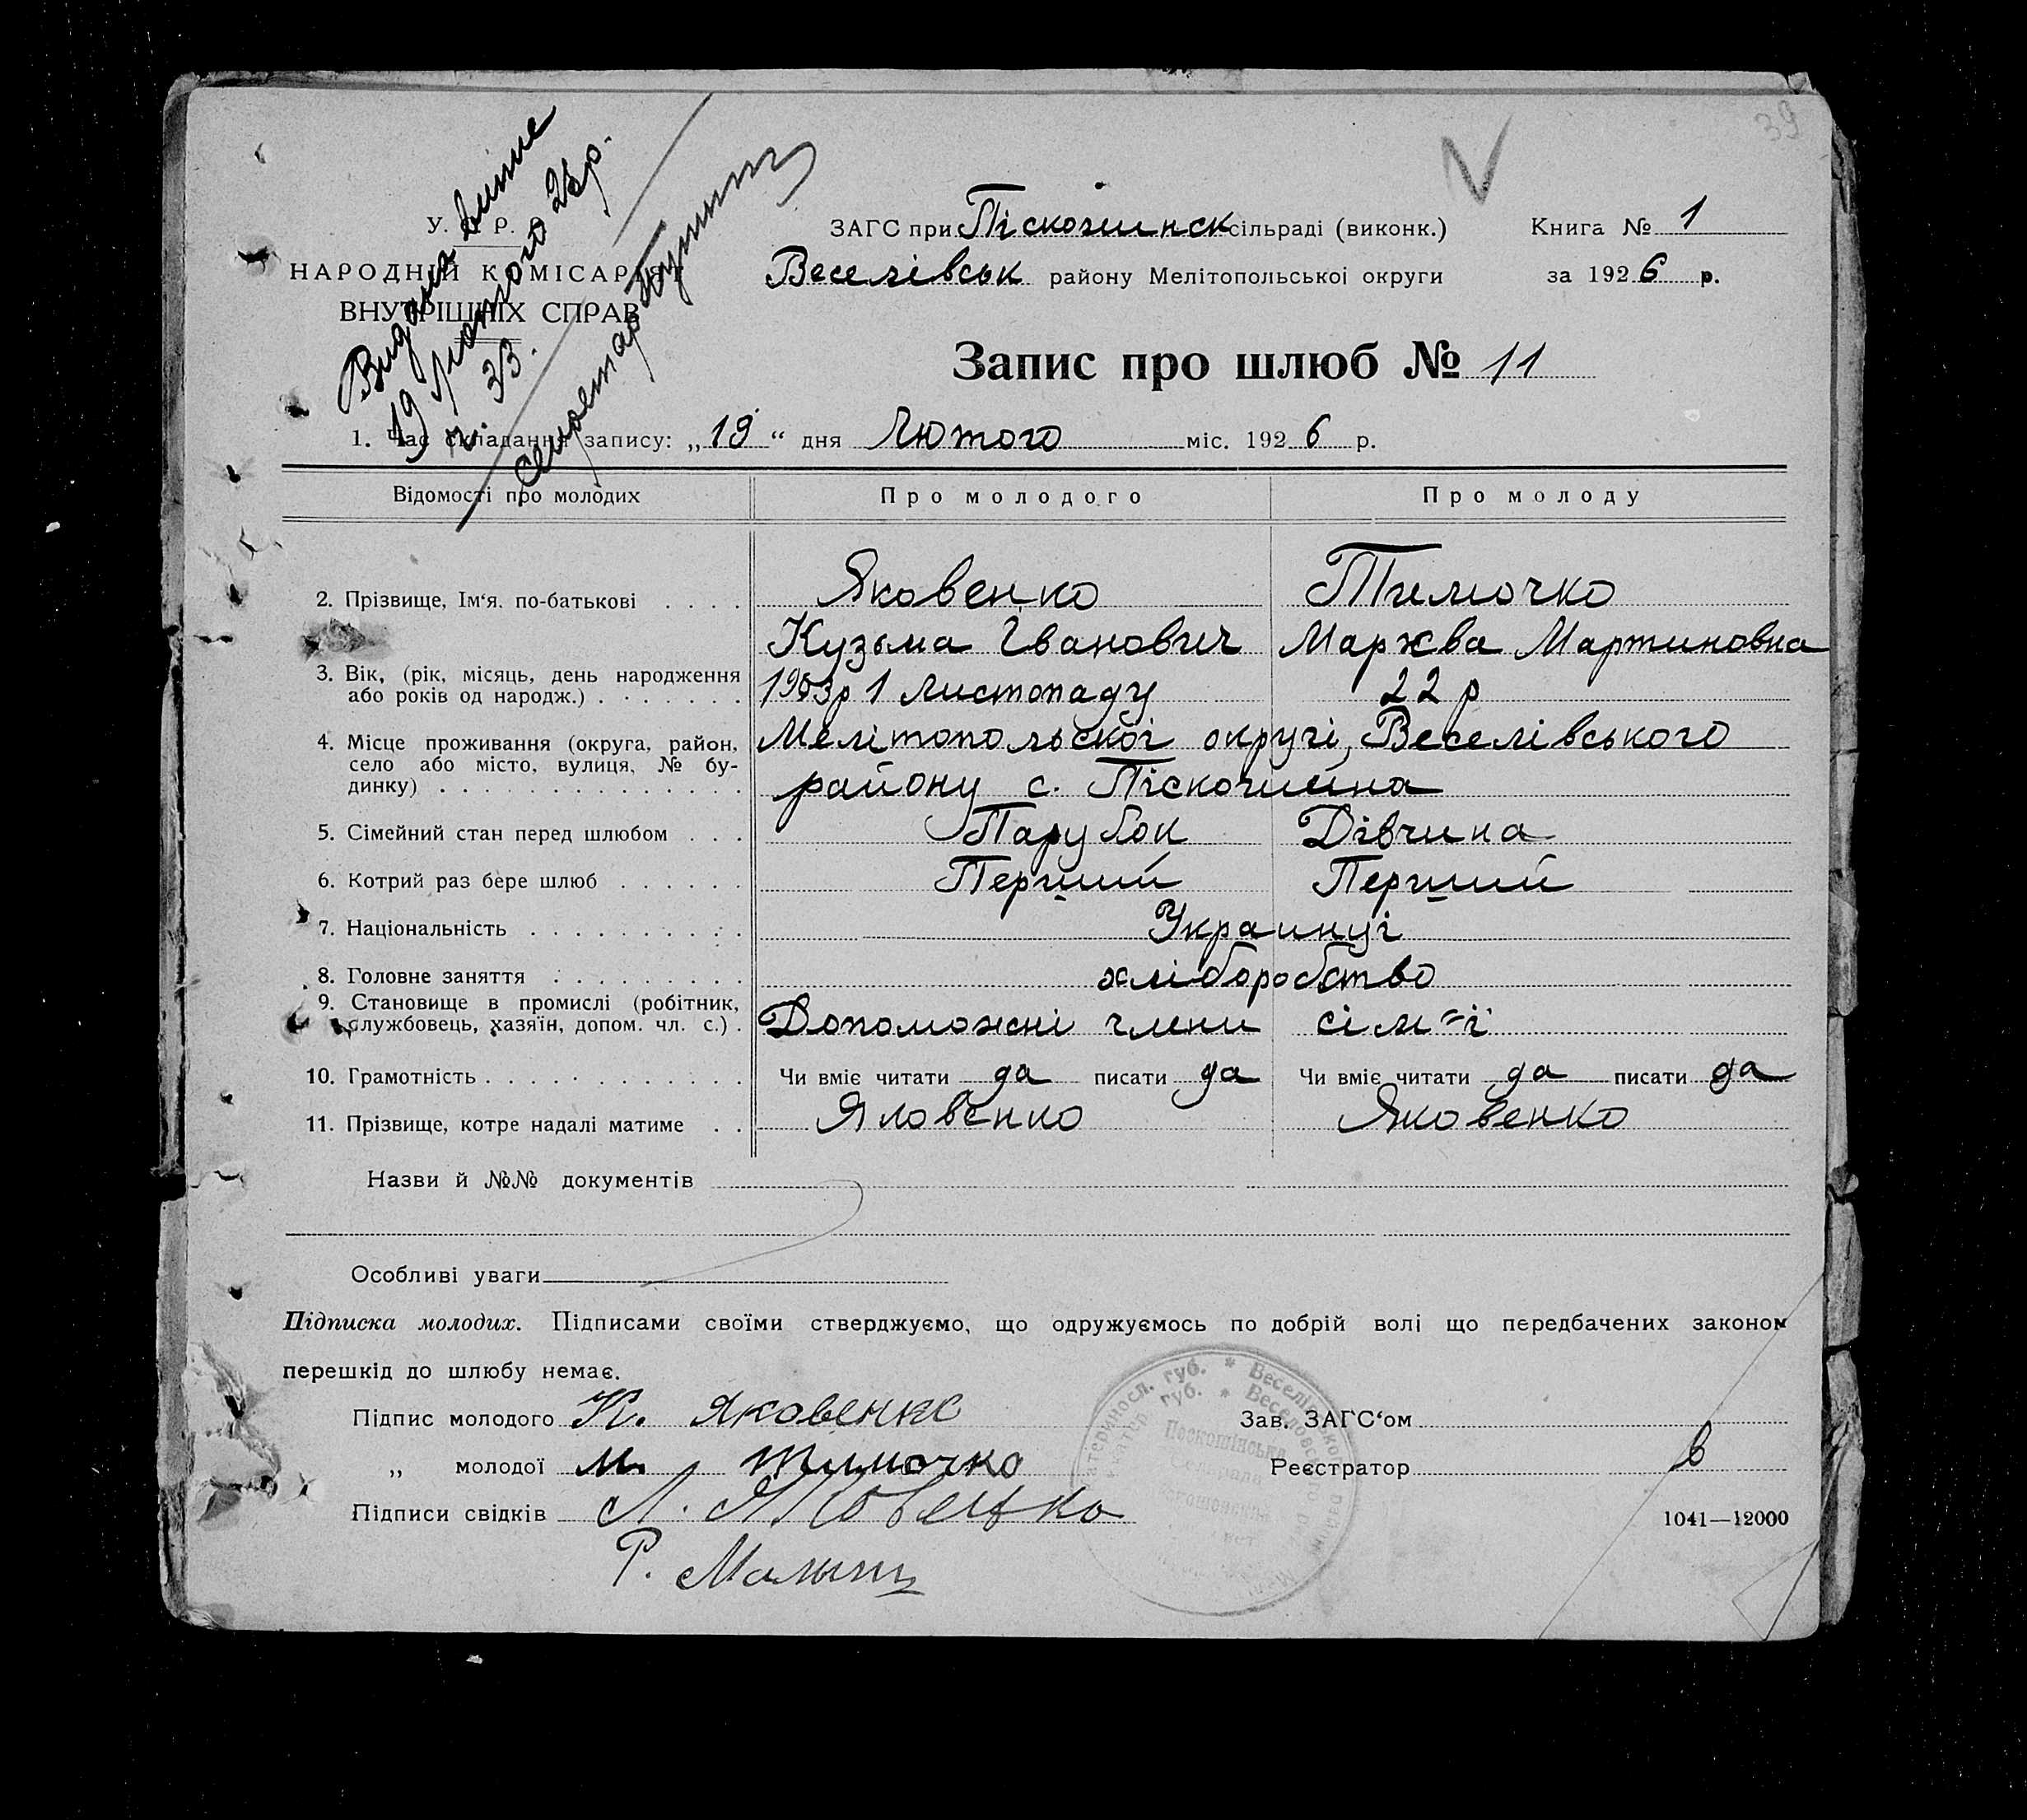 39
Видана
19 лютого 26 р.
ч. 33.
У. Р.
НАРОДНІЙ КОМІСАРІЯТ
ВНУТРІШНІХ СПРАВ
ЗАГС при Піскошинск сільраді (виконк.) Книга № 1
Веселівськ району Мелітопольської округи за 1926 р.
Запис про шлюб № 11
1. Час складання запису: „19“ дня Лютого міс. 1926 р.
Відомості про молодих Про молодого Про молоду
2. Прізвище, Ім‘я. по-батькові . . . . Яковенко Тимочко
Кузьма Іванович Мархва Мартиновна
3. Вік, (рік, місяць, день народження
або років од народж.) . . . . . . . 1903р 1 Листопаду 22 р
4. Місце проживання (округа, район, Мелітопольскоі округі, Веселівського
село або місто, вулиця, № бу-
динку) . . . . . . . . . . . . . . району с. Піскошина
5. Сімейний стан перед шлюбом . . . Парубок Дівчина
6. Котрий раз бере шлюб . . . . . . Перший Перший
7. Національність . . . . . . . . . . Украинці
8. Головне заняття . . . . . . . . . хліборобство
9. Становище в промислі (робітник,
службовець, хазяїн, допом. чл. с.) . Допоможні члени сім"і
10. Грамотність . . . . . . . . . . . . Чи вміє читати да писати да Чи вміє читати да писати да
11. Прізвище, котре надалі матиме . . Яковенко Яковенко
Назви й №№ документів
Особливі уваги
Підписка молодих. Підписами своїми стверджуємо, що одружуємось по добрій волі що передбачених законом
перешкід до шлюбу немає.
Підпис молодого К. Яковенко Зав. ЗАГС‘ом
„ молодої М. Тимочко Реєстратор
Підписи свідків Л. Яковенко 1041—12000
Р.